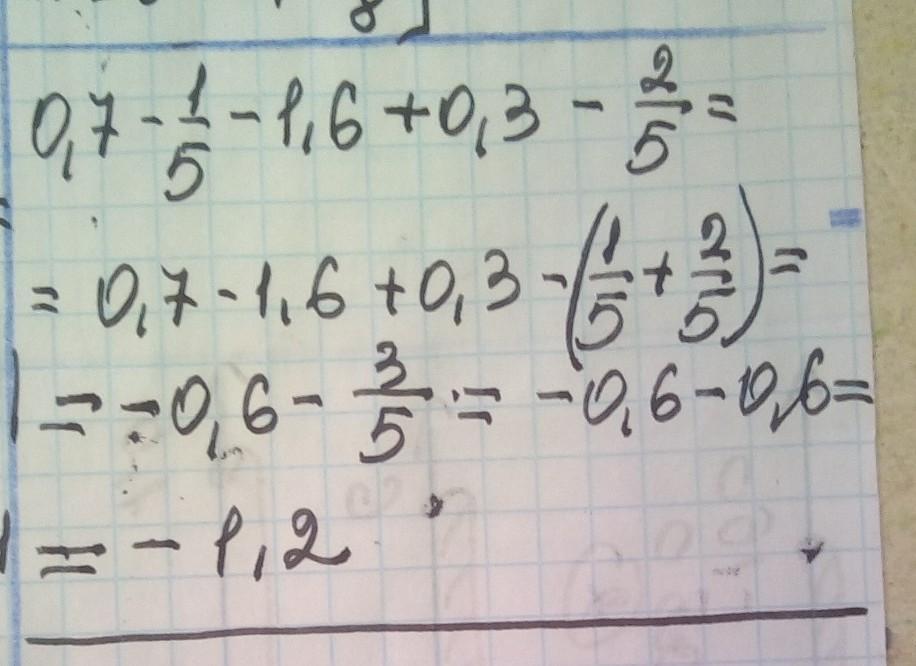 8]
0,7 - 1/5 - 1,6 + 0,3 - 2/5 =
= 0,7 - 1,6 + 0,3 - (1/5 + 2/5) =
= -0,6 - 3/5 = -0,6 - 0,6 =
= -1,2